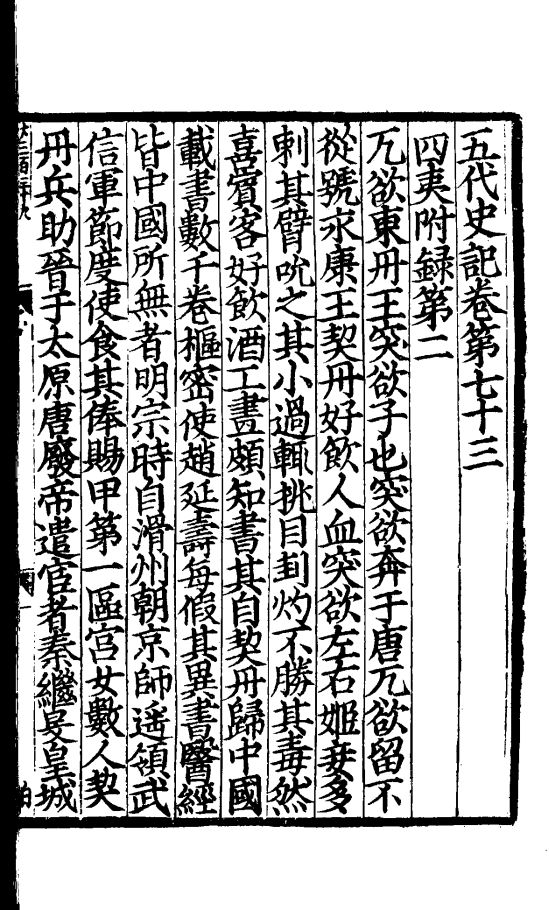 五代史記卷第七十三
四夷附録第二
兀欲東丹王突欲子也突欲奔于唐兀欲留不
從號永康王契丹好飲人血突欲左右姬妾多
刺其臂吮之其小過輒挑目刲灼不勝其毒然
喜賓客好飲酒工畫頗知書其自契丹歸中國
載書數千卷樞密使趙延壽每假其異書醫經
皆中國所無者明宗時自滑州朝京師遥領武
信軍節度使食其俸賜甲第一區宫女數人契
丹兵助晉于太原唐廢帝遣宦者秦繼旻皇城